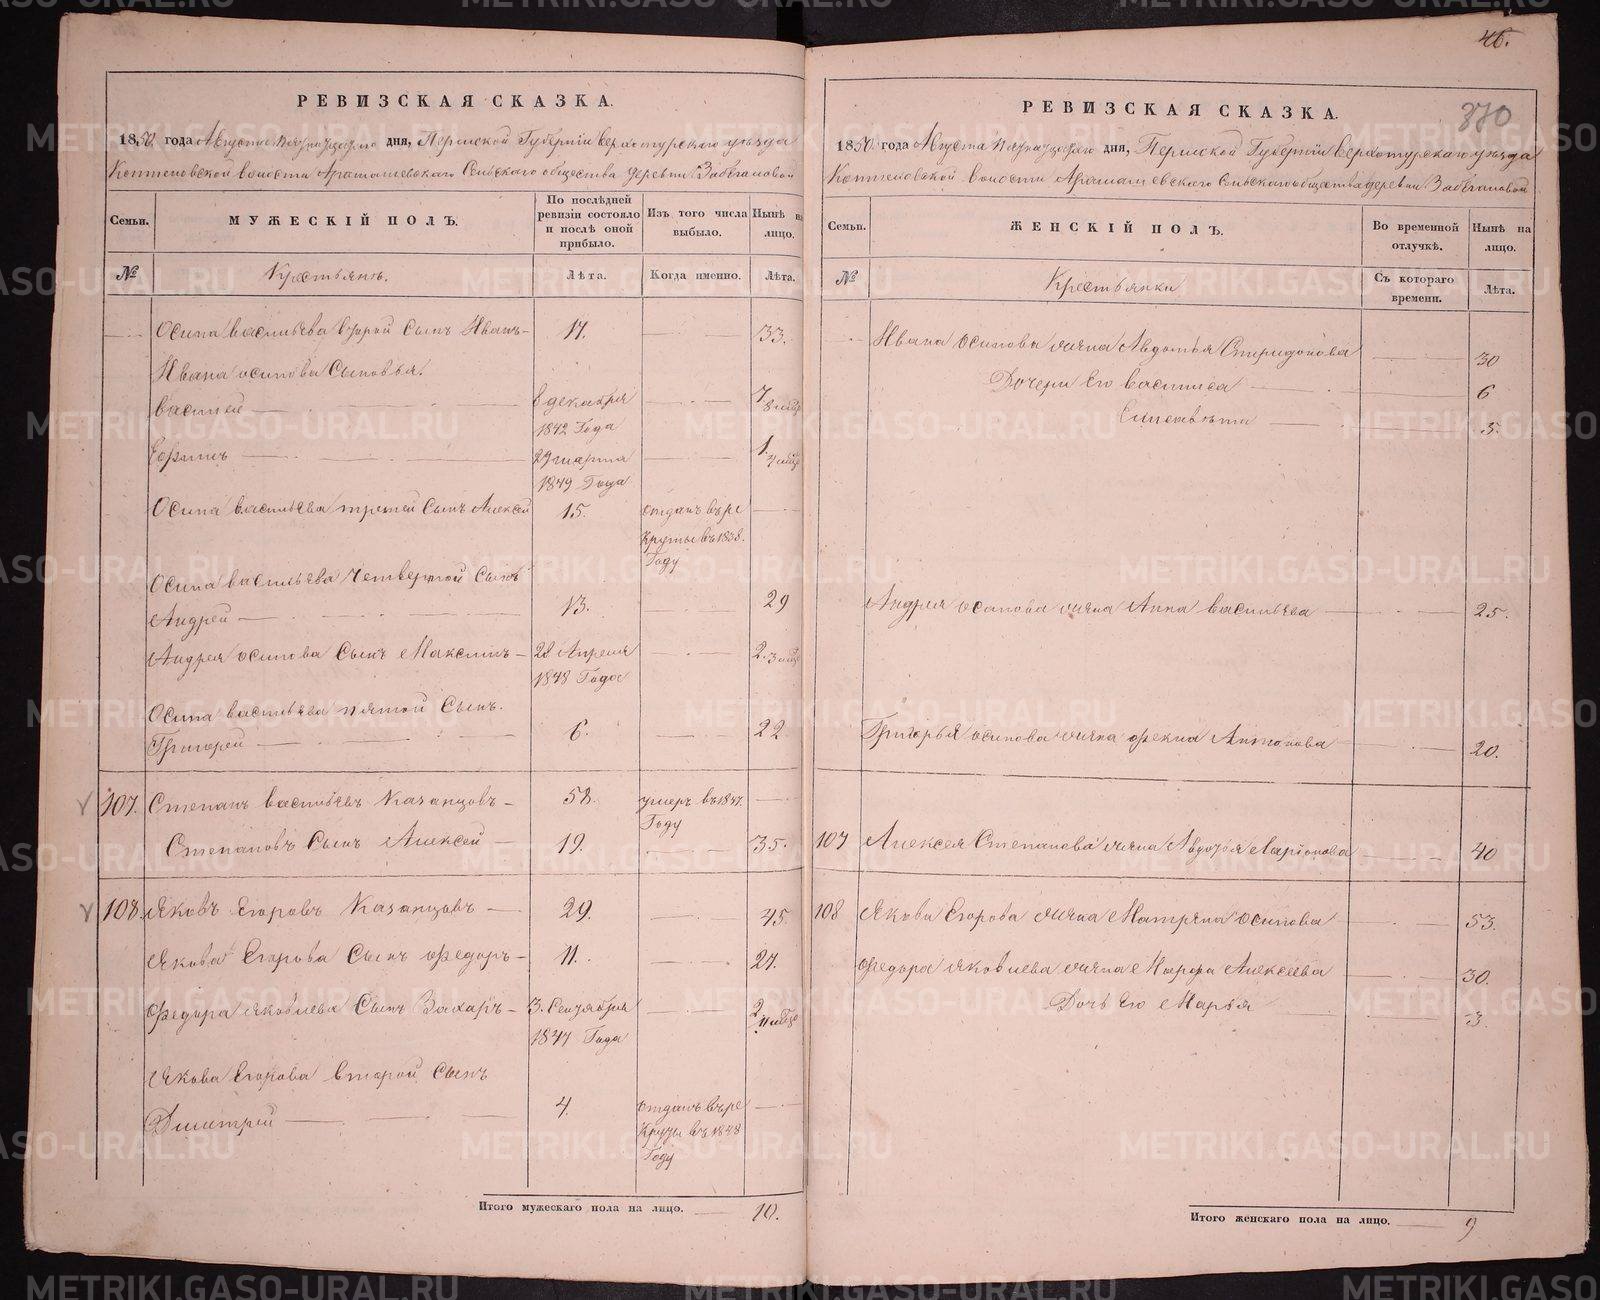 РЕВИЗСКАЯ СКАЗКА.
1850 года Августа пятнадцатаго дня, Пермской Губерніи Верхотурскаго уезда
Коптеловской волости Арамашевскаго Сельскаго общества деревни Забегаловой
Семьи.
МУЖЕСКІЙ ПОЛЪ.
По послѣдней ревизіи состояло и послѣ оной прибыло.
Изъ того числа выбыло.
Нынѣ на лицо.
№
Крестьянъ.
Лѣта.
Когда именно.
Лѣта.
Осипа васильева второй Сынъ Иванъ 17. 33.
Ивана осипова Сыновья.
василей 8 декабря 7
1842 Года 8 мѣсц
Ефимъ 29 марта 1.
1849 Года 4 мѣсц
Осипа васильева третей Сынъ Алексей 15. отданъ въ ре
круты въ 1838.
Году
Осипа васильева Четвертой Сынъ
Андрей 13. 29
Андрея осипова Сынъ Максимъ 28 Апреля 2. 3 мѣсц
1848 Года
Осипа васильева пятой Сынъ.
Григорей 6. 22
107. Степанъ васильевъ Казанцовъ 58. умеръ въ 1847.
Году
Степановъ Сынъ Алексей 19. 35.
108. Яковъ Егоровъ Казанцовъ 29. 45.
Якова Егорова Сынъ Федоръ 11. 27.
Федора яковлева Сынъ Захаръ 3. Сентября 2
1847 Года 11 мѣсц
Якова Егорова второй Сынъ
Димитрей 4. отданъ въ ре
круты въ 1848
Году
Итого мужескаго пола на лицо. 10.
46.
870
РЕВИЗСКАЯ СКАЗКА.
1850 года Августа пятнадцатаго дня, Пермской Губерніи Верхотурскаго уезда
Коптеловской волости Арамашевскаго Сельскаго общества деревни Забегаловой
Семьи.
ЖЕНСКІЙ ПОЛЪ.
Во временной отлучкѣ.
Нынѣ на лицо.
№
Крестьянки
Съ котораго времени.
Лѣта.
Ивана осипова жена Авдотья Спиридонова 30
Дочери его василиса 6
Елисавета 5.
Андрея осипова жена Анна васильева 25.
Григорья осипова жена Фекла Антонова 20.
107 Алексея Степанова жена Авдотья Ларіонова 40
108 Якова Егорова жена Матрена осипова 53.
Федора яковлева жена Марфа Алексеева 30.
Дочь его Марья 3.
Итого женскаго пола на лицо. 9
METRIKI.GASO-URAL.RU